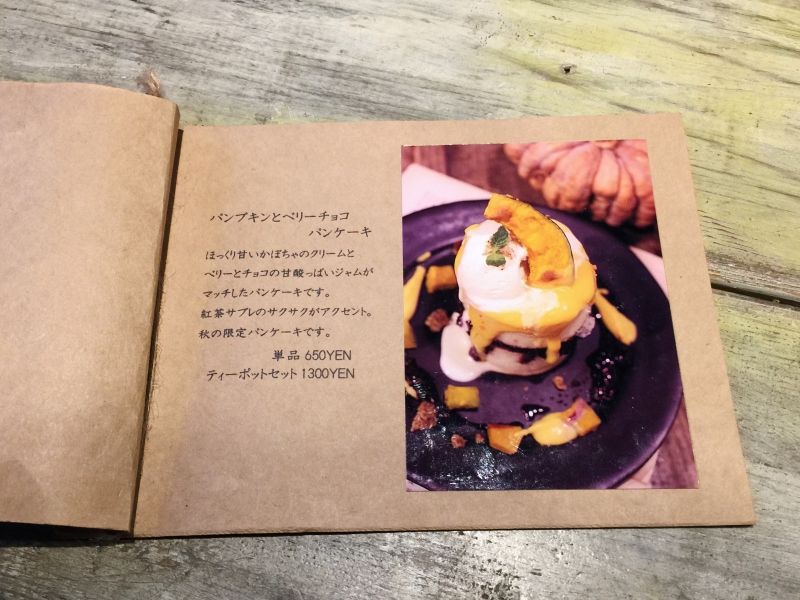 パンプキンとベリーチョコ
パンケーキ
ほっくり甘いかぼちゃのクリームと
ベリーとチョコの甘酸っぱいジャムが
マッチしたパンケーキです。
紅茶サブレのサクサクがアクセント。
秋の限定パンケーキです。
単品 650YEN
ティーポットセット 1300YEN